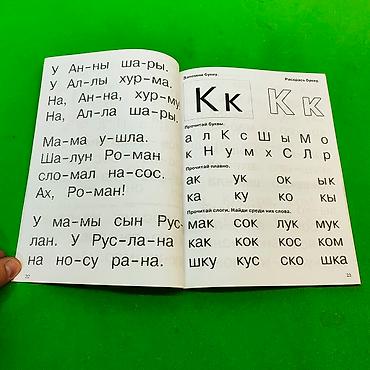 У Ан–ны ша–ры.
У Ал–лы хур–ма.
На, Ан–на, хур–му
На, Ал–ла ша–ры.
Ма–ма у–шла.
Ша–лун Ро–ман
сло–мал на–сос.
Ах, Ро–ман!
У ма–мы сын Рус–
лан. У Рус–ла–на
на но–су ра–на.
22
Запомни букву. Раскрась букву.
К к К к
Прочитай буквы.
а л К с Ш ы М о
к Н у м х С Л р
Прочитай плавно.
ак ук ок ык
ка ку ко кы
Прочитай слоги. Найди среди них слова.
мак сок лук мук
как кок кос ком
шку кус ско шка
23